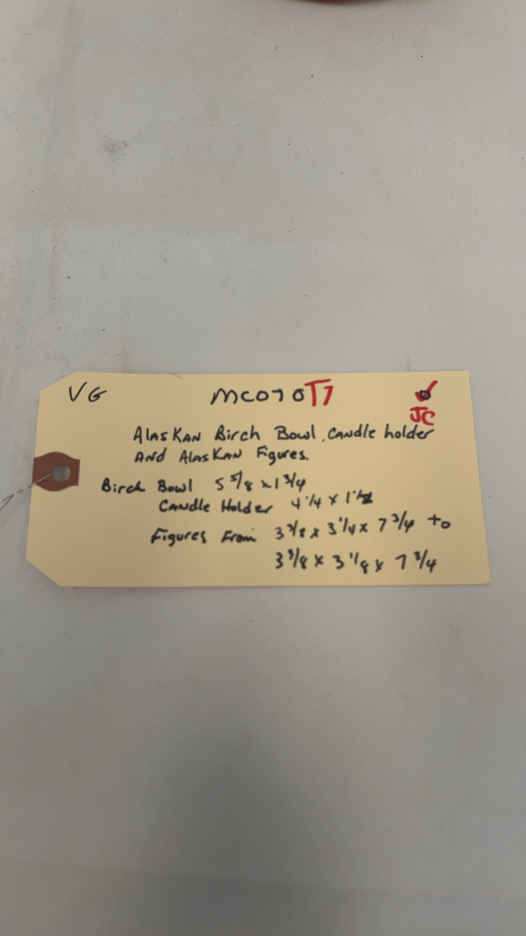 VG MC070T7
JC
Alaskan Birch Bowl, Candle holder
And Alaskan Figures.
Birch Bowl 5 5/8 x 1 3/4
Candle Holder 4 1/4 x 1 1/2
Figures From 3 3/8 x 3 1/4 x 7 3/4 to
3 3/8 x 3 1/8 x 7 3/4